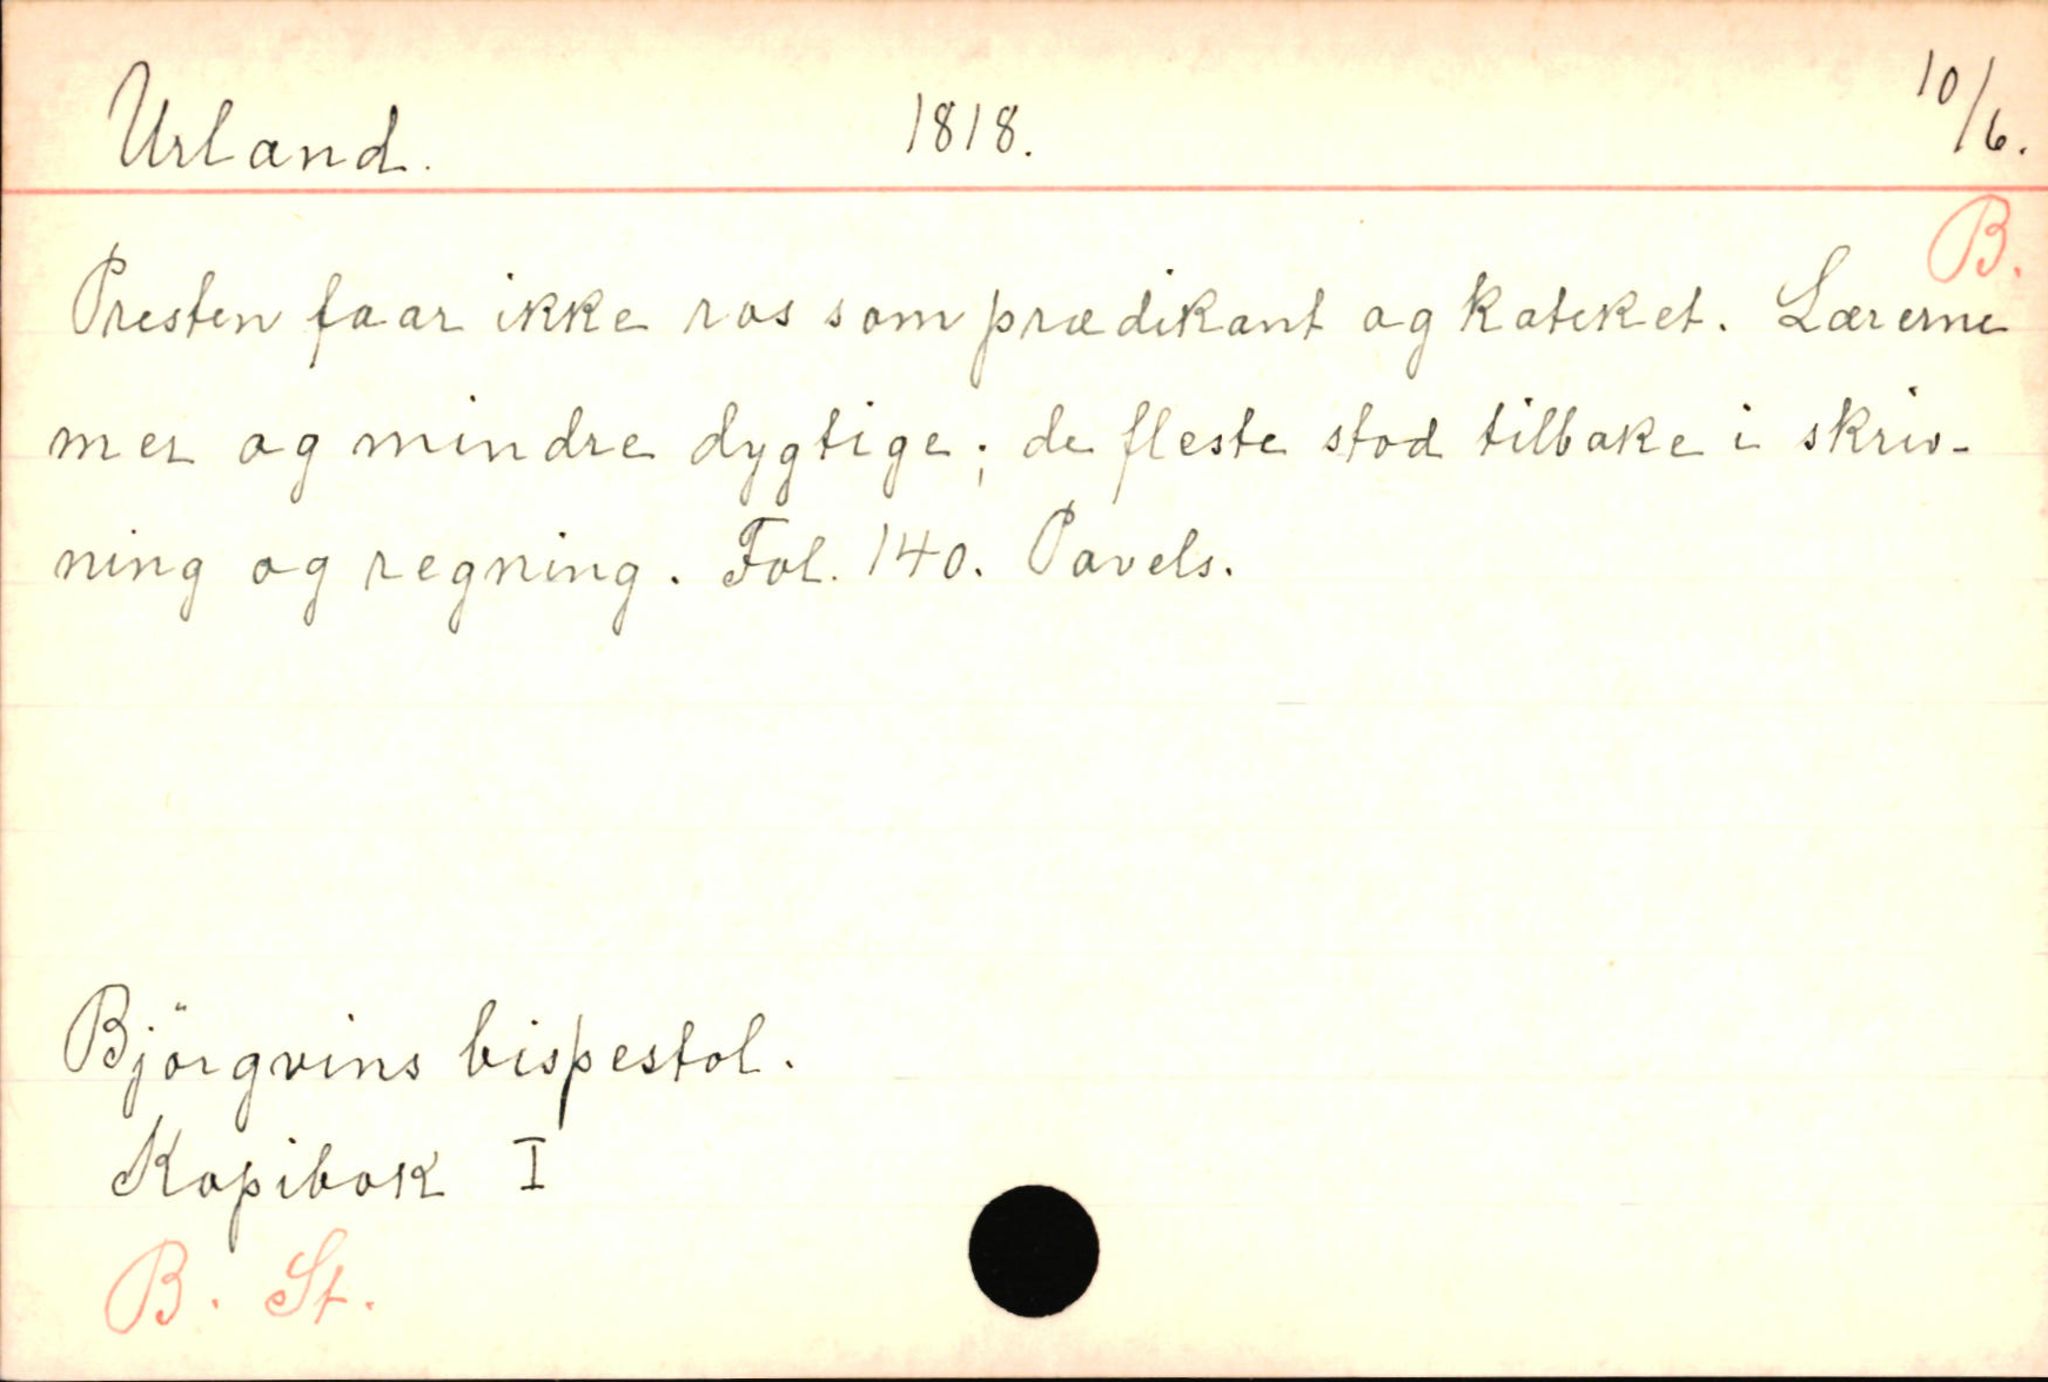 Urland. 1818. 10/6.
B.
Presten faar ikke ros som prædikant og kateket. Lærerne
mer og mindre dygtige; de fleste stod tilbake i skriv-
ning og regning. Fol. 140. Pavels.
Björgvins bispestol.
Kopibok I
B. St.